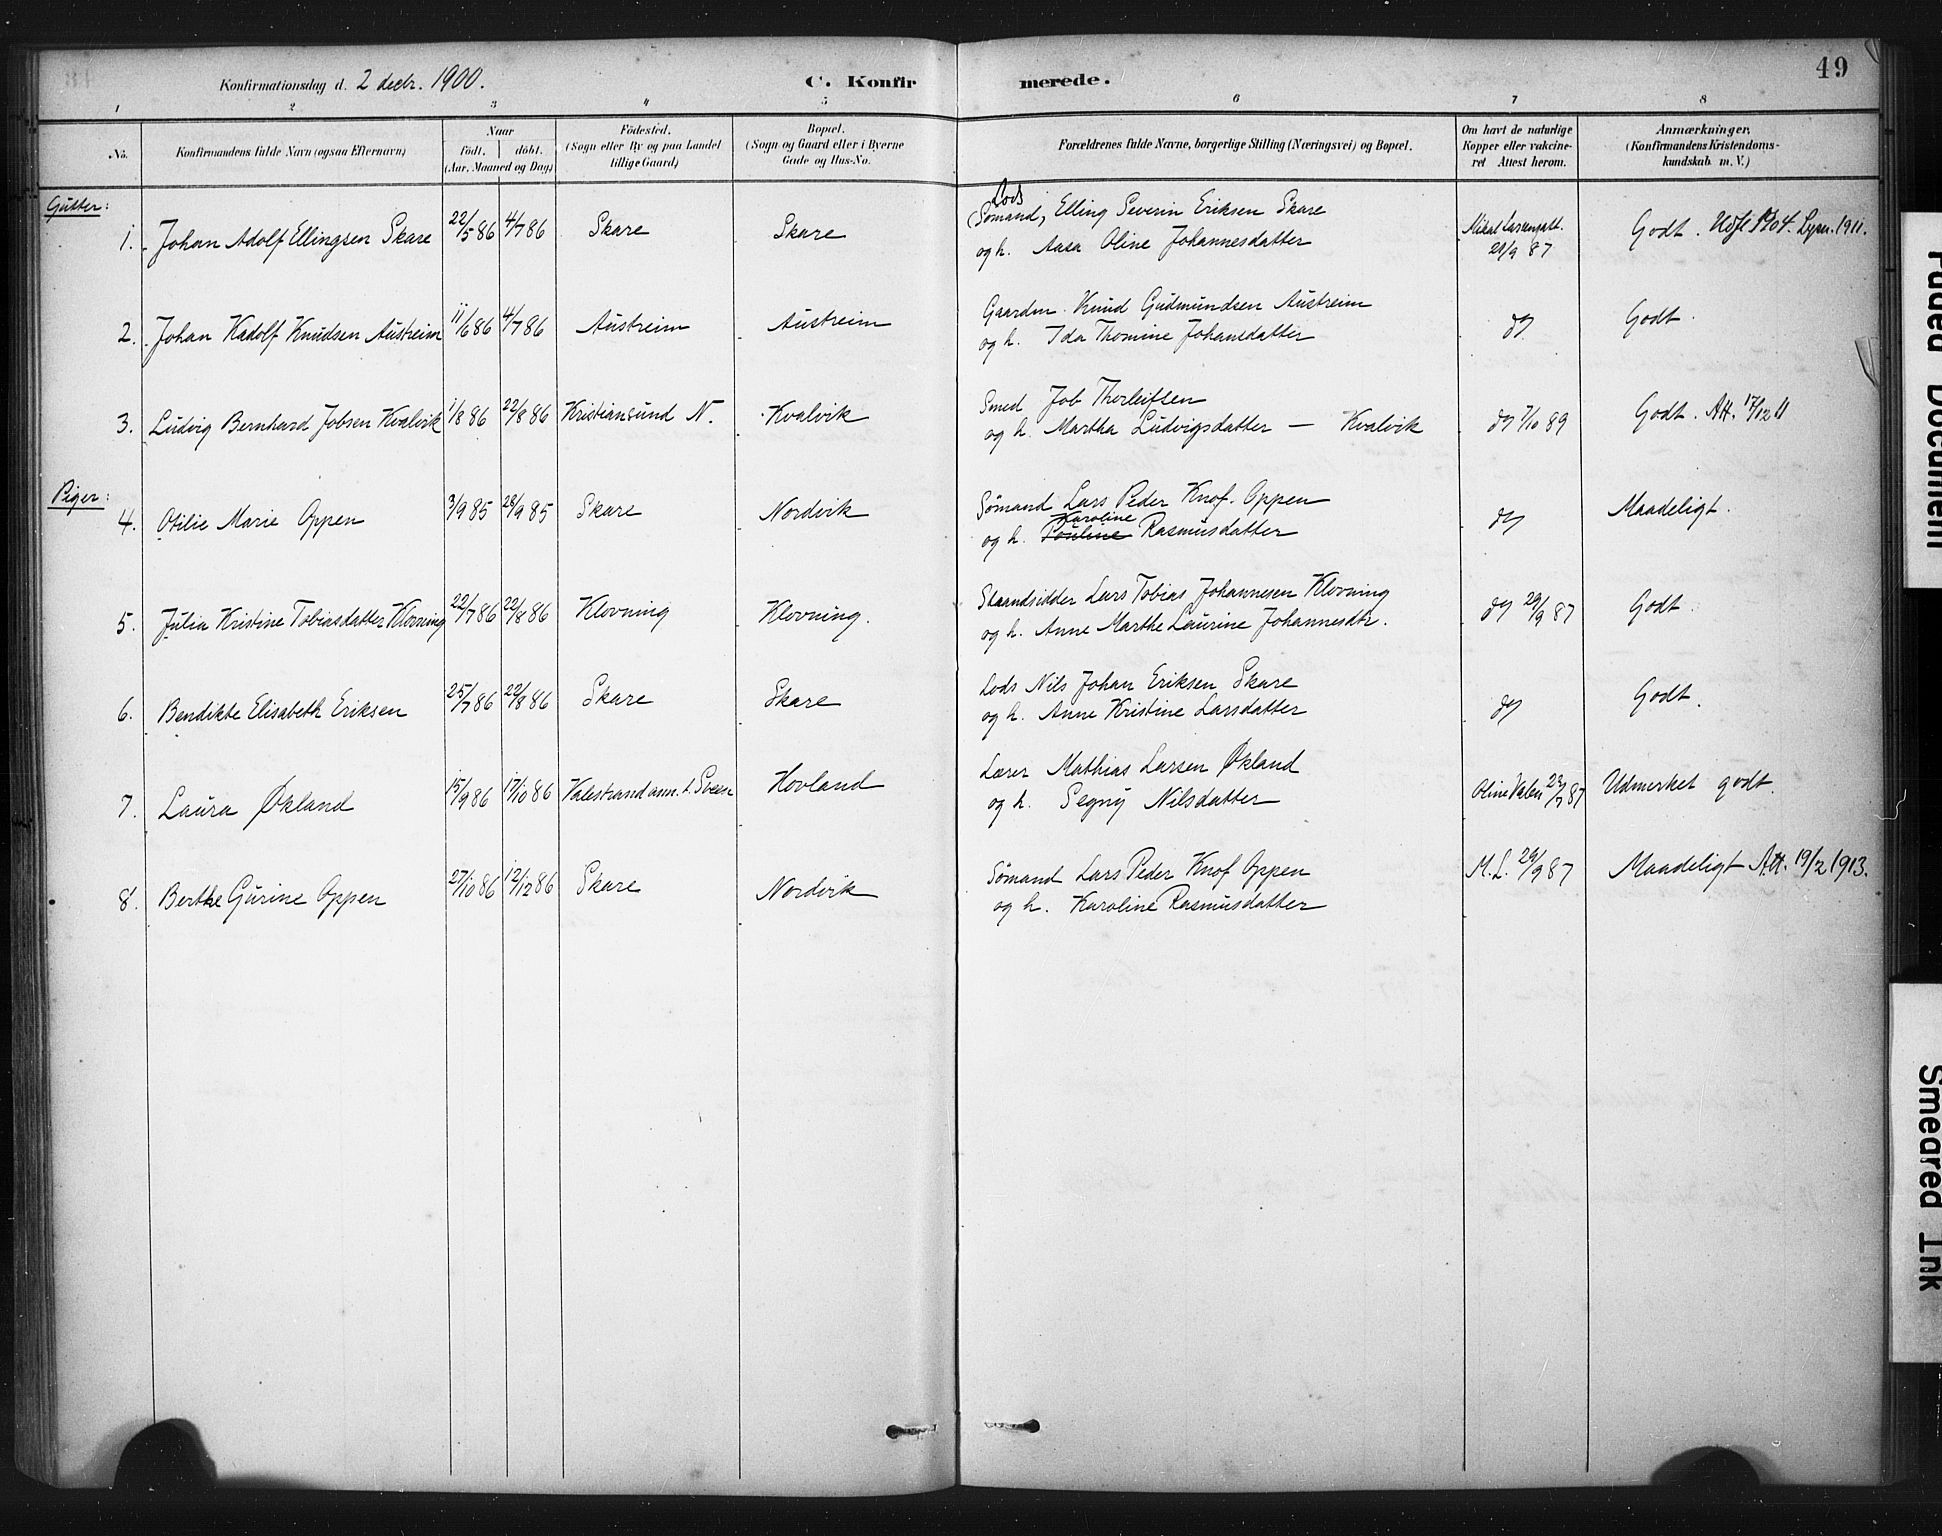 Konfirmationsdag d. 2 decbr. 1900. C. Konfirmerede. 49
1 2 3 4 5 6 7 8
No. Konfirmandens fulde Navn (ogsaa Efternavn) Naar Födt. döbt. (Aar, Maaned og Dag) Födested. (Sogn eller By og paa Landet tillige Gaard) Bopæl. (Sogn og Gaard eller i Byerne Gade og Hus-No. Forældrenes fulde Navne, borgerlige Stilling (Næringsvei) og Bopæl. Om havt de naturlige Kopper eller vakcineret Attest herom. Anmærkninger. (Konfirmandens Kristendomskundskab m. V.)
Gutter:
1. Johan Adolf Ellingsen Skare 22/5 86 4/7 86 Skare Skare Lods (Sømand, Elling Severin Eriksen Skare
og h. Aasa Oline Johannesdatter 29/9 87 Godt. 1911.
2. Johan Kadolf Knudsen Austreim 11/6 86 4/7 86 Austreim Austreim Gaardm. Knud Gudmundsen Austreim
og h. Ida Thomine Johansdatter Godt.
3. Ludvig Bernhard Jobsen Kvalvik 1/8 86 22/8 86 Kristiansund N. Kvalvik Smed Job Thorleifsen
og h. Martha Ludvigsdatter — Kvalvik 7/10 89 Godt. Att. 17/12 11
Piger:
4. Otilie Marie Oppen 3/9 85 28/9 85 Skare Nordvik Sømand Lars Peder Knof Oppen
Karoline
og h. Pouline Rasmusdatter Maadeligt.
5. Julia Kristine Tobiasdatter Klovning 22/7 86 22/8 86 Klovning Klovning. Strandsidder Lars Tobias Johannesen Klovning
og h. Anne Marthe Laurine Johannesdtr. 29/9 87 Godt
6. Bendikte Elisabeth Eriksen 25/7 86 22/8 86 Skare Skare Lods Nils Johan Eriksen Skare
og h. Anne Kristine Larsdatter Godt.
7. Laura Økland 15/9 86 17/10 86 Valestrand ann. t. Sveen Hovland Lærer Mathias Larsen Økland
og h. Segny Nilsdatter Oline Valen 23/7 87 Udmerket godt.
8. Berthe Gurine Oppen 27/10 86 12/12 86 Skare Nordvik Sømand Lars Peder Knof Oppen
og h. Karoline Rasmusdatter M.L. 29/9 87 Maadeligt Att. 19/2 1913.
Faded Document
Smeared Ink